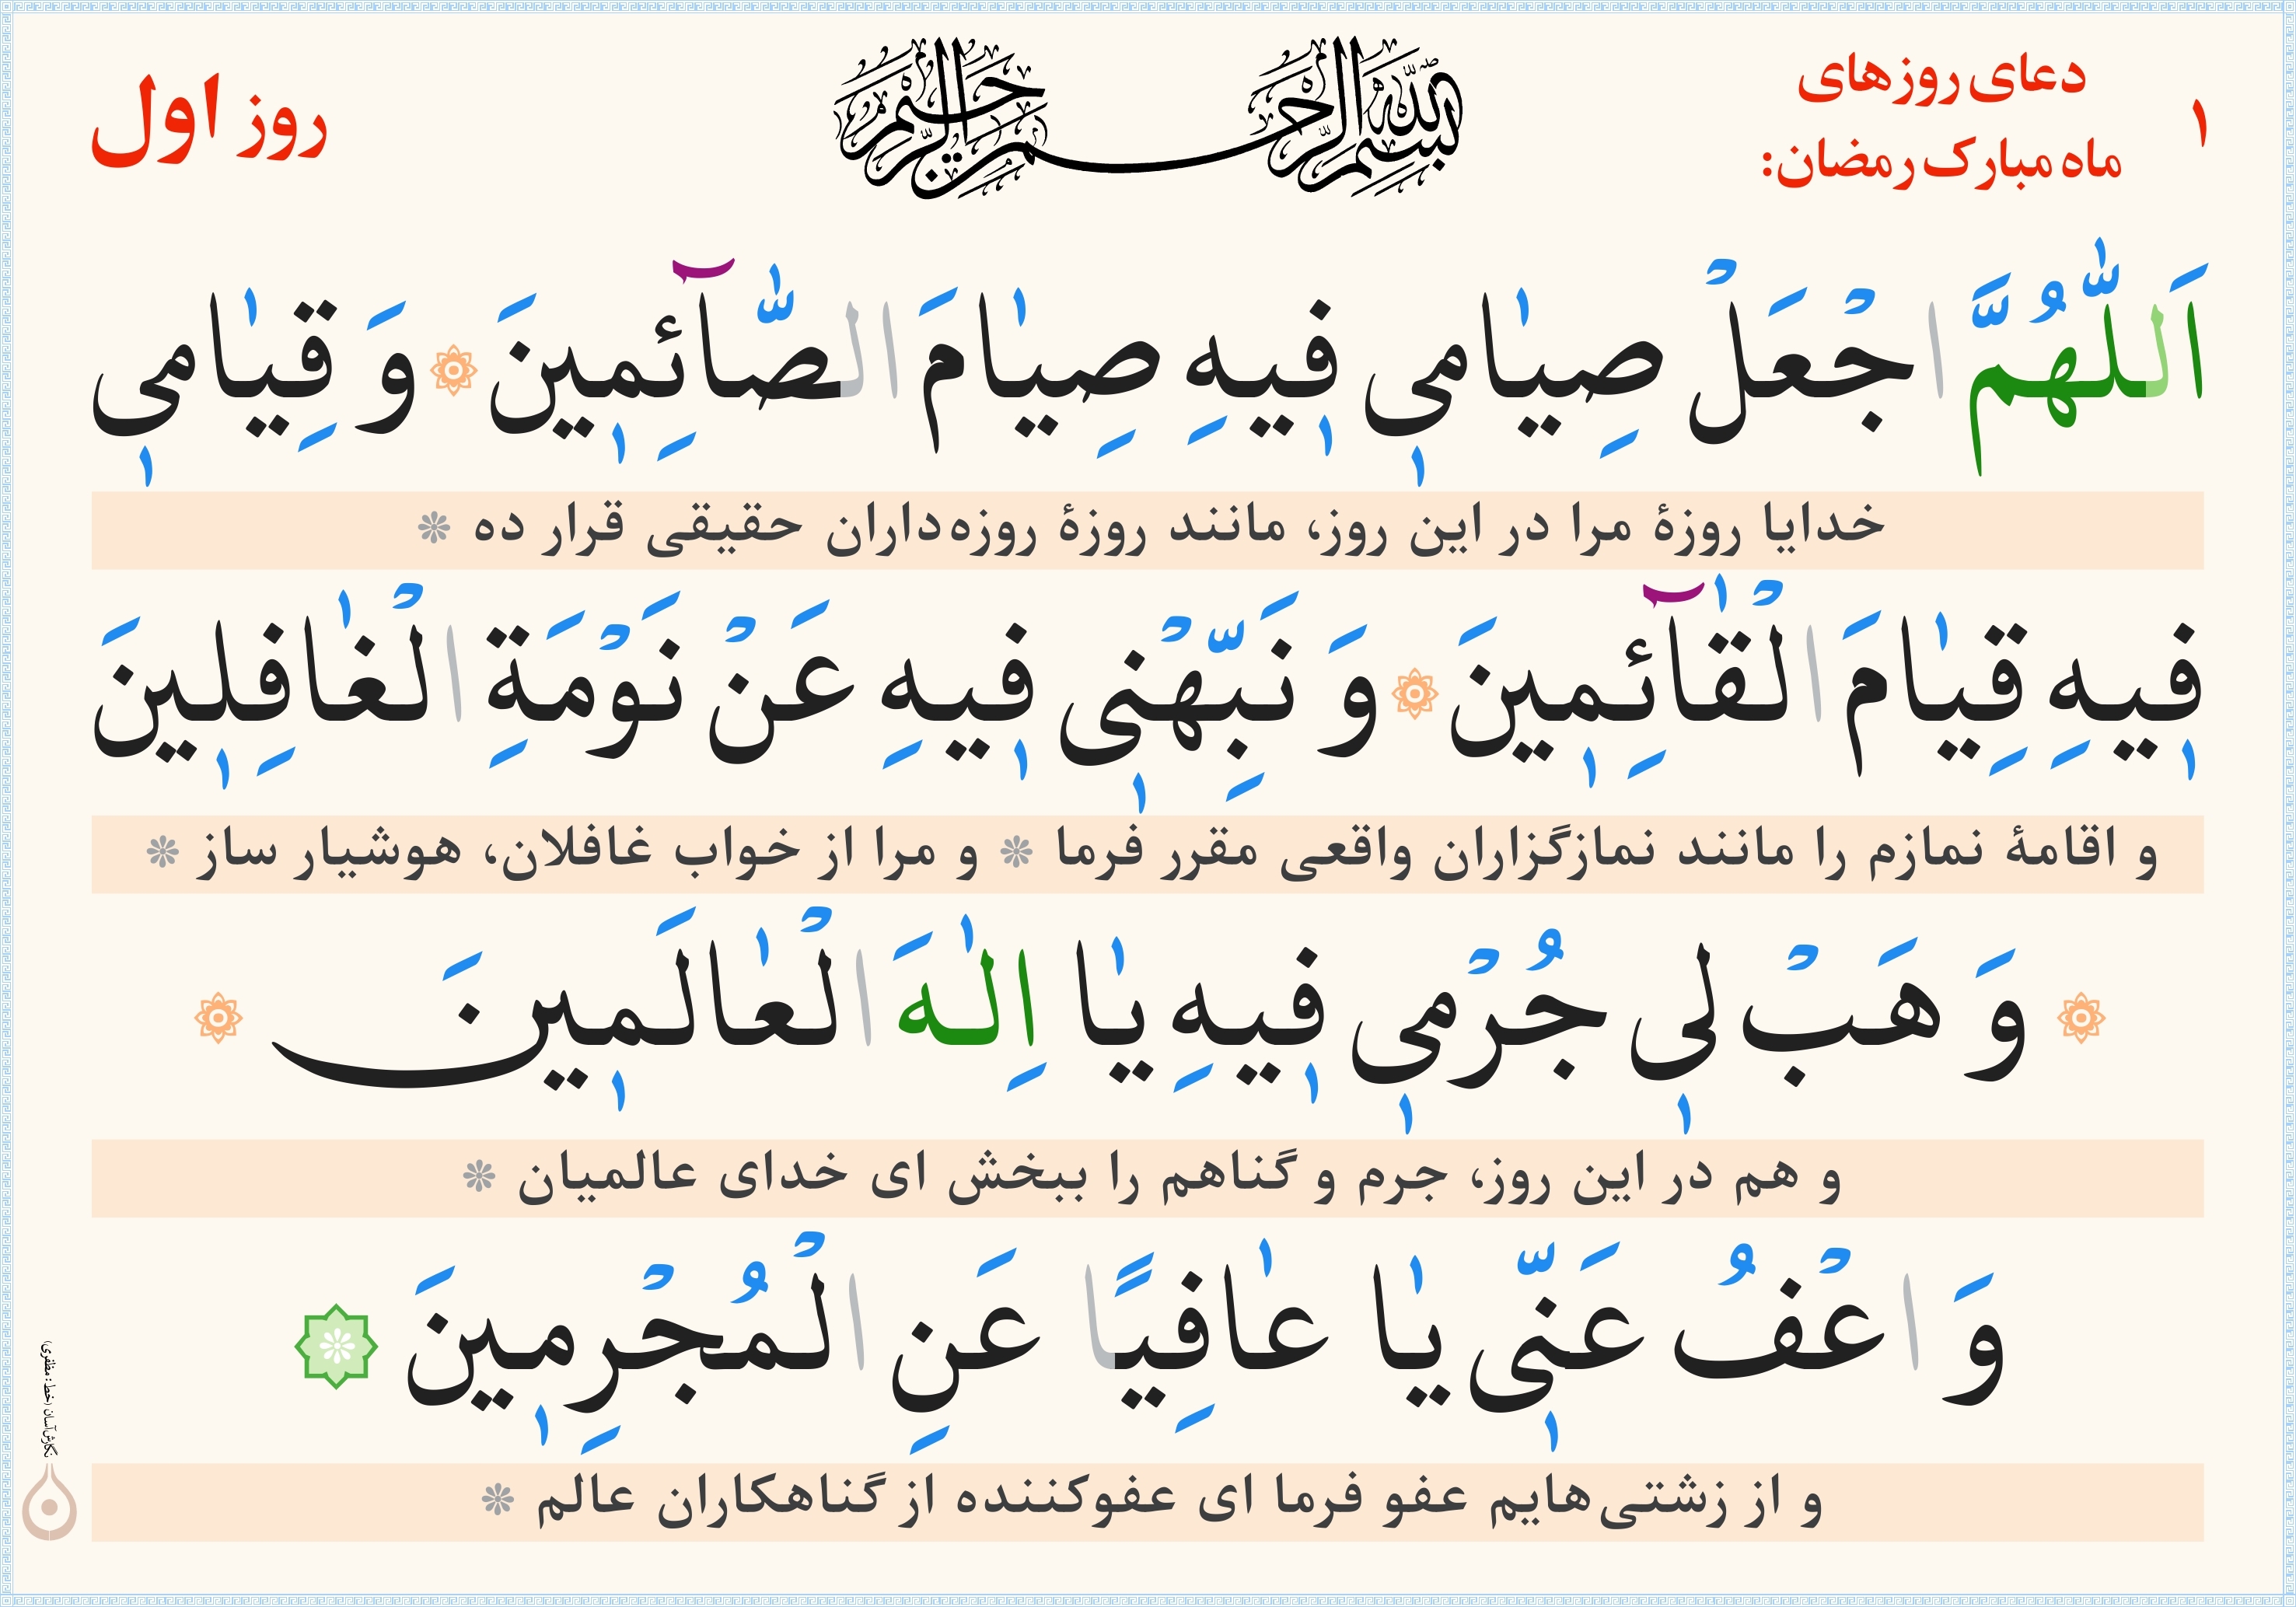 ۱
دعای روزهای
ماه مبارک رمضان:
بسم الله الرحمن الرحیم
روز اول
اَللّٰهُمَّ اجْعَلْ صِیٰامی فیهِ صِیٰامَ الصّٰآئِمینَ وَ قِیٰامی
خدایا روزهٔ مرا در این روز، مانند روزهٔ روزه‌داران حقیقی قرار ده
فیهِ قِیٰامَ الْقٰآئِمینَ وَ نَبِّهْنی فیهِ عَنْ نَوْمَةِ الْغٰافِلینَ
و اقامهٔ نمازم را مانند نمازگزاران واقعی مقرر فرما و مرا از خواب غافلان، هوشیار ساز
وَ هَبْ لی جُرْمی فیهِ یٰا اِلٰهَ الْعٰالَمینَ
و هم در این روز، جرم و گناهم را ببخش ای خدای عالمیان
وَ اعْفُ عَنّی یٰا عٰافِیًا عَنِ الْمُجْرِمینَ
و از زشتی‌هایم عفو فرما ای عفوکننده از گناهکاران عالم
نگارش آسان (خط: مظفری)